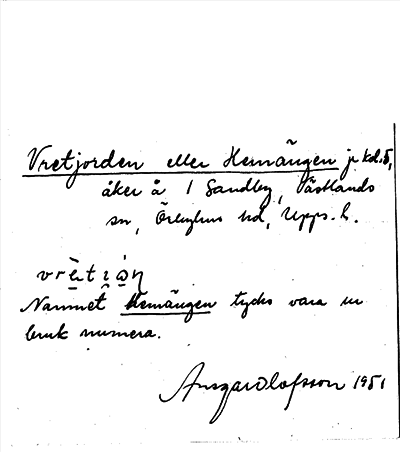 Vretjorden eller Hemängen jr kd. 5,
åker å 1 Sandby, Västlands
sn, Örbyhus hd, Upps. l.
Namnet Hemängen tycks vara ur
bruk numera.
Ansgar Olofsson 1951